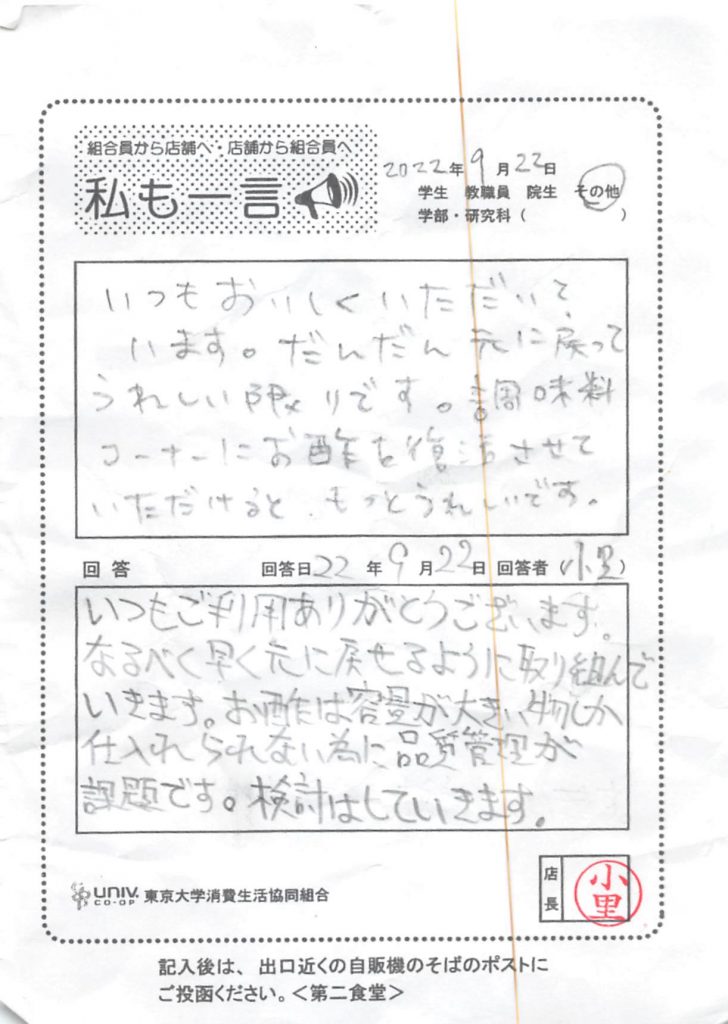 組合員から店舗へ・店舗から組合員へ
私も一言
2022年 9月 22日
学生 教職員 院生 その他
学部・研究科（ ）
いつもおいしくいただいて
います。だんだん元に戻って
うれしい限りです。調味料
コーナーにお酢を復活させて
いただけると、もっとうれしいです。
回答 回答日22年9月22日 回答者（小里）
いつもご利用ありがとうございます。
なるべく早く元に戻せるように取り組んで
いきます。お酢は容量が大きい物しか
仕入れられない為に品質管理が
課題です。検討はしていきます。
UNIV. CO-OP 東京大学消費生活協同組合
店長 小里
記入後は、出口近くの自販機のそばのポストに
ご投函ください。＜第二食堂＞